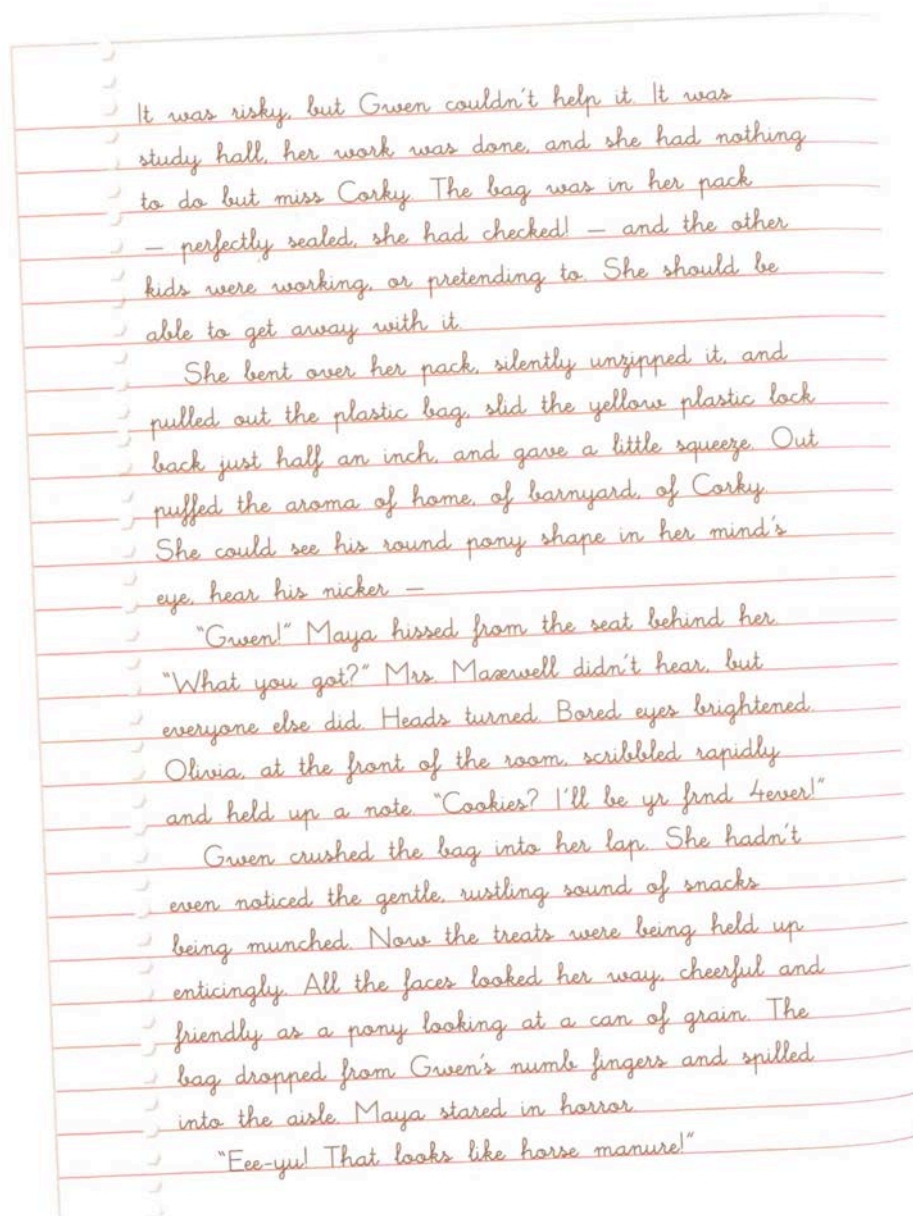 It was risky, but Gwen couldn't help it. It was
study hall, her work was done, and she had nothing
to do but miss Corky. The bag was in her pack
— perfectly sealed, she had checked! — and the other
kids were working, or pretending to. She should be
able to get away with it.
She bent over her pack, silently unzipped it, and
pulled out the plastic bag, slid the yellow plastic lock
back just half an inch, and gave a little squeeze. Out
puffed the aroma of home, of barnyard, of Corky.
She could see his round pony shape in her mind's
eye, hear his nicker —
"Gwen!" Maya hissed from the seat behind her.
"What you got?" Mrs. Maxwell didn't hear, but
everyone else did. Heads turned. Bored eyes brightened.
Olivia, at the front of the room, scribbled rapidly
and held up a note. "Cookies? I'll be yr frnd 4ever!"
Gwen crushed the bag into her lap. She hadn't
even noticed the gentle, rustling sound of snacks
being munched. Now the treats were being held up
enticingly. All the faces looked her way, cheerful and
friendly as a pony looking at a can of grain. The
bag dropped from Gwen's numb fingers and spilled
into the aisle. Maya stared in horror.
"Eee-yu! That looks like horse manure!"